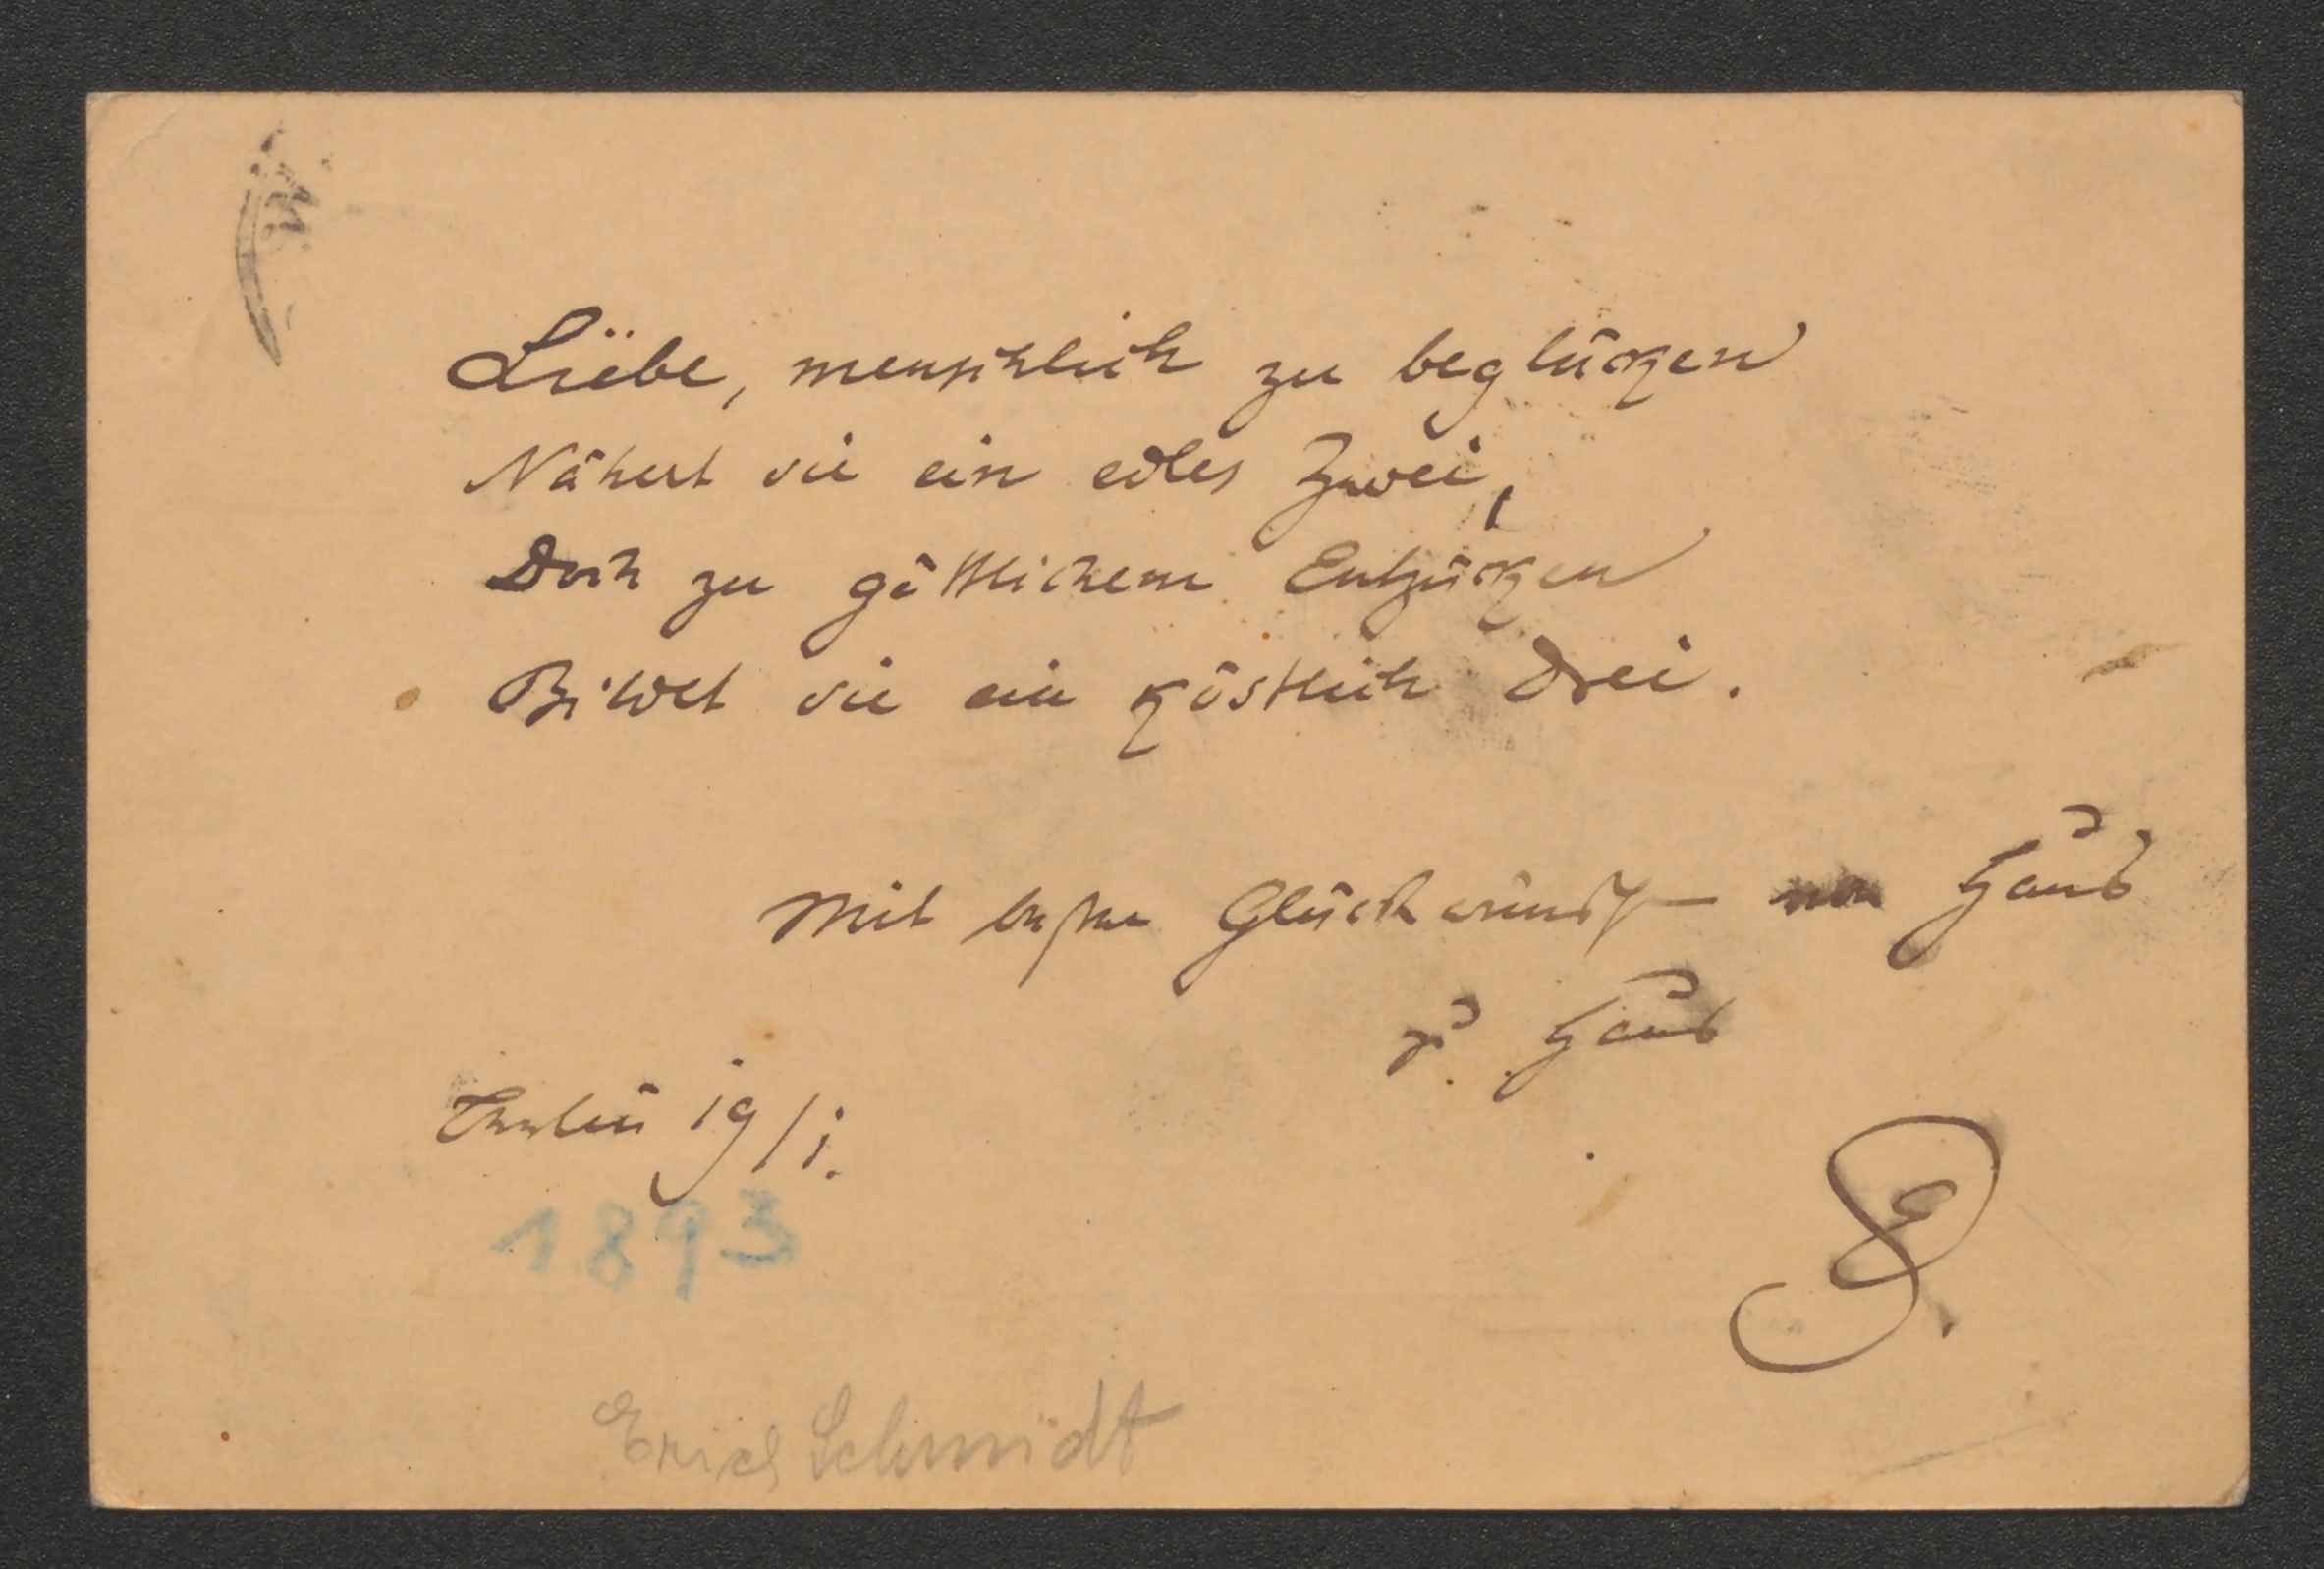 Liebe, menschlich zu beglücken
Nähert sie ein edles Zwei,
Doch zu göttlichem Entzücken
Bildet sie ein köstlich Drei.
Mit besten Glückwünschen von Haus
zu Haus
Berlin 19/1.
1893
ES.
Erich Schmidt